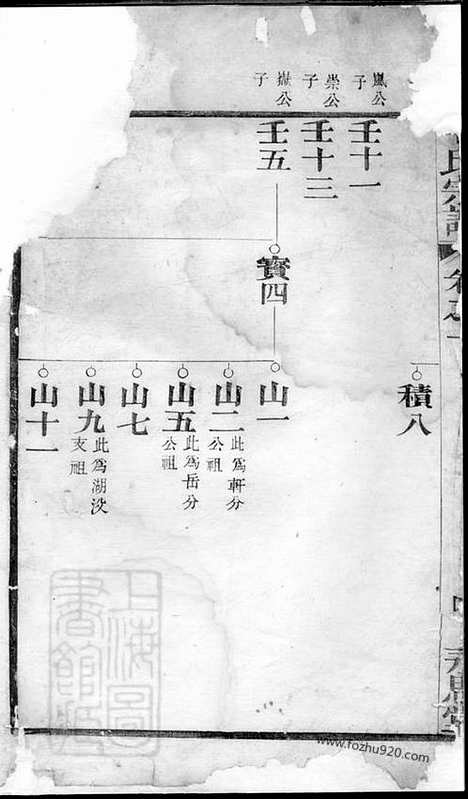 嵐公
子
壬十一
崇公
子
壬十三
嶽公
子
壬五
實四
積八
山一
山二
此爲軒分
公祖
山五
此爲岳分
公祖
山七
山九
此爲湖沒
支祖
山十一
氏宗譜
卷之一
上海圖
書館藏
www.fozhu920.com